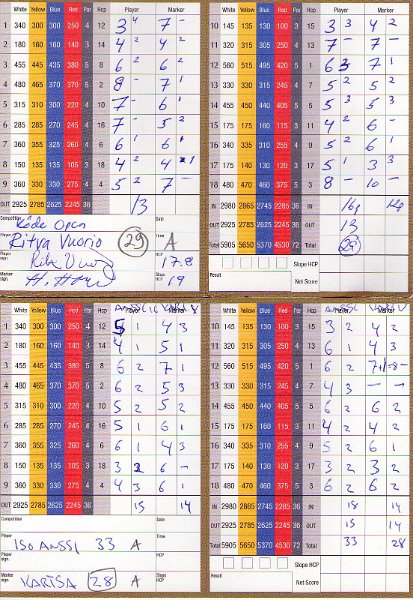 White Yellow Blue Red Par Hcp Player Marker
1 340 300 300 250 4 12 3 4 7 –
2 180 160 160 140 3 14 4 2 4 2
3 580 560 495 385 5 8 6 2 6 2
4 480 465 370 370 5 2 8 – 7 1
5 315 310 220 4 10 7 – 6 1
6 285 285 270 245 4 16 7 – 5 2
7 360 355 325 260 4 6 6 1 6 1
8 150 135 105 3 18 4 2 4 1
9 360 330 330 275 4 4 5 2 7 –
OUT 2925 2785 2625 2245 36 13
Competition Date
Köde Open
Ritva Vuorio 29 A
Time
Player sign. 17.8
Marker sign. HCP 19
White Yellow Blue Red Par Hcp Player Marker
10 145 135 130 100 3 15 3 3 4 2
11 320 315 305 250 4 13 7 – 7 –
12 560 515 495 420 5 1 6 3 7 1
13 455 430 425 335 4 7 5 2 5 2
14 455 450 440 405 5 5 5 3 5 3
15 175 175 160 115 3 11 4 2 6 –
16 340 335 310 255 4 9 5 2 6 1
17 175 140 130 120 3 17 5 1 3 3
18 480 470 460 375 5 3 8 – 10 –
IN 2980 2865 2745 2285 36 IN 16 14
OUT 2925 2785 2625 2245 36 OUT 13
Total 5905 5650 5370 4530 72 Total 29
Result Slope HCP
Net Score
ANSSI I KARI V
1 340 300 300 250 4 12 5 1 4 3
2 180 160 160 140 3 14 4 1 5 1
3 580 560 495 385 5 8 6 2 7 1
4 480 465 370 370 5 2 6 2 5 3
5 315 310 220 4 10 5 2 5 2
6 285 285 270 245 4 16 5 1 6 1
7 360 355 325 260 4 6 6 1 4 3
8 150 135 105 3 18 3 2 6 –
9 360 330 330 275 4 4 4 3 6 1
OUT 2925 2785 2625 2245 36 15 14
Competition Date
Time
Player sign. ISO ANSSI 33 A
Marker sign. KARISA 28 A HCP
ANSSI KARI V
10 145 135 130 100 3 15 3 2 4 2
11 320 315 305 250 4 13 6 1 4 3
12 560 515 495 420 5 1 6 2 7 1 –8–
13 455 430 425 335 4 7 4 3 – –
14 455 450 440 405 5 5 6 2 6 2
15 175 175 160 115 3 11 4 2 4 2
16 340 335 310 255 4 9 5 2 6 1
17 175 140 130 120 3 17 3 2 3 2
18 480 470 460 375 5 3 6 2 6 2
IN 2980 2865 2745 2285 36 IN 18 14
OUT 2925 2785 2625 2245 36 OUT 15 14
Total 5905 5650 5370 4530 72 Total 33 28
Result Slope HCP
Net Score